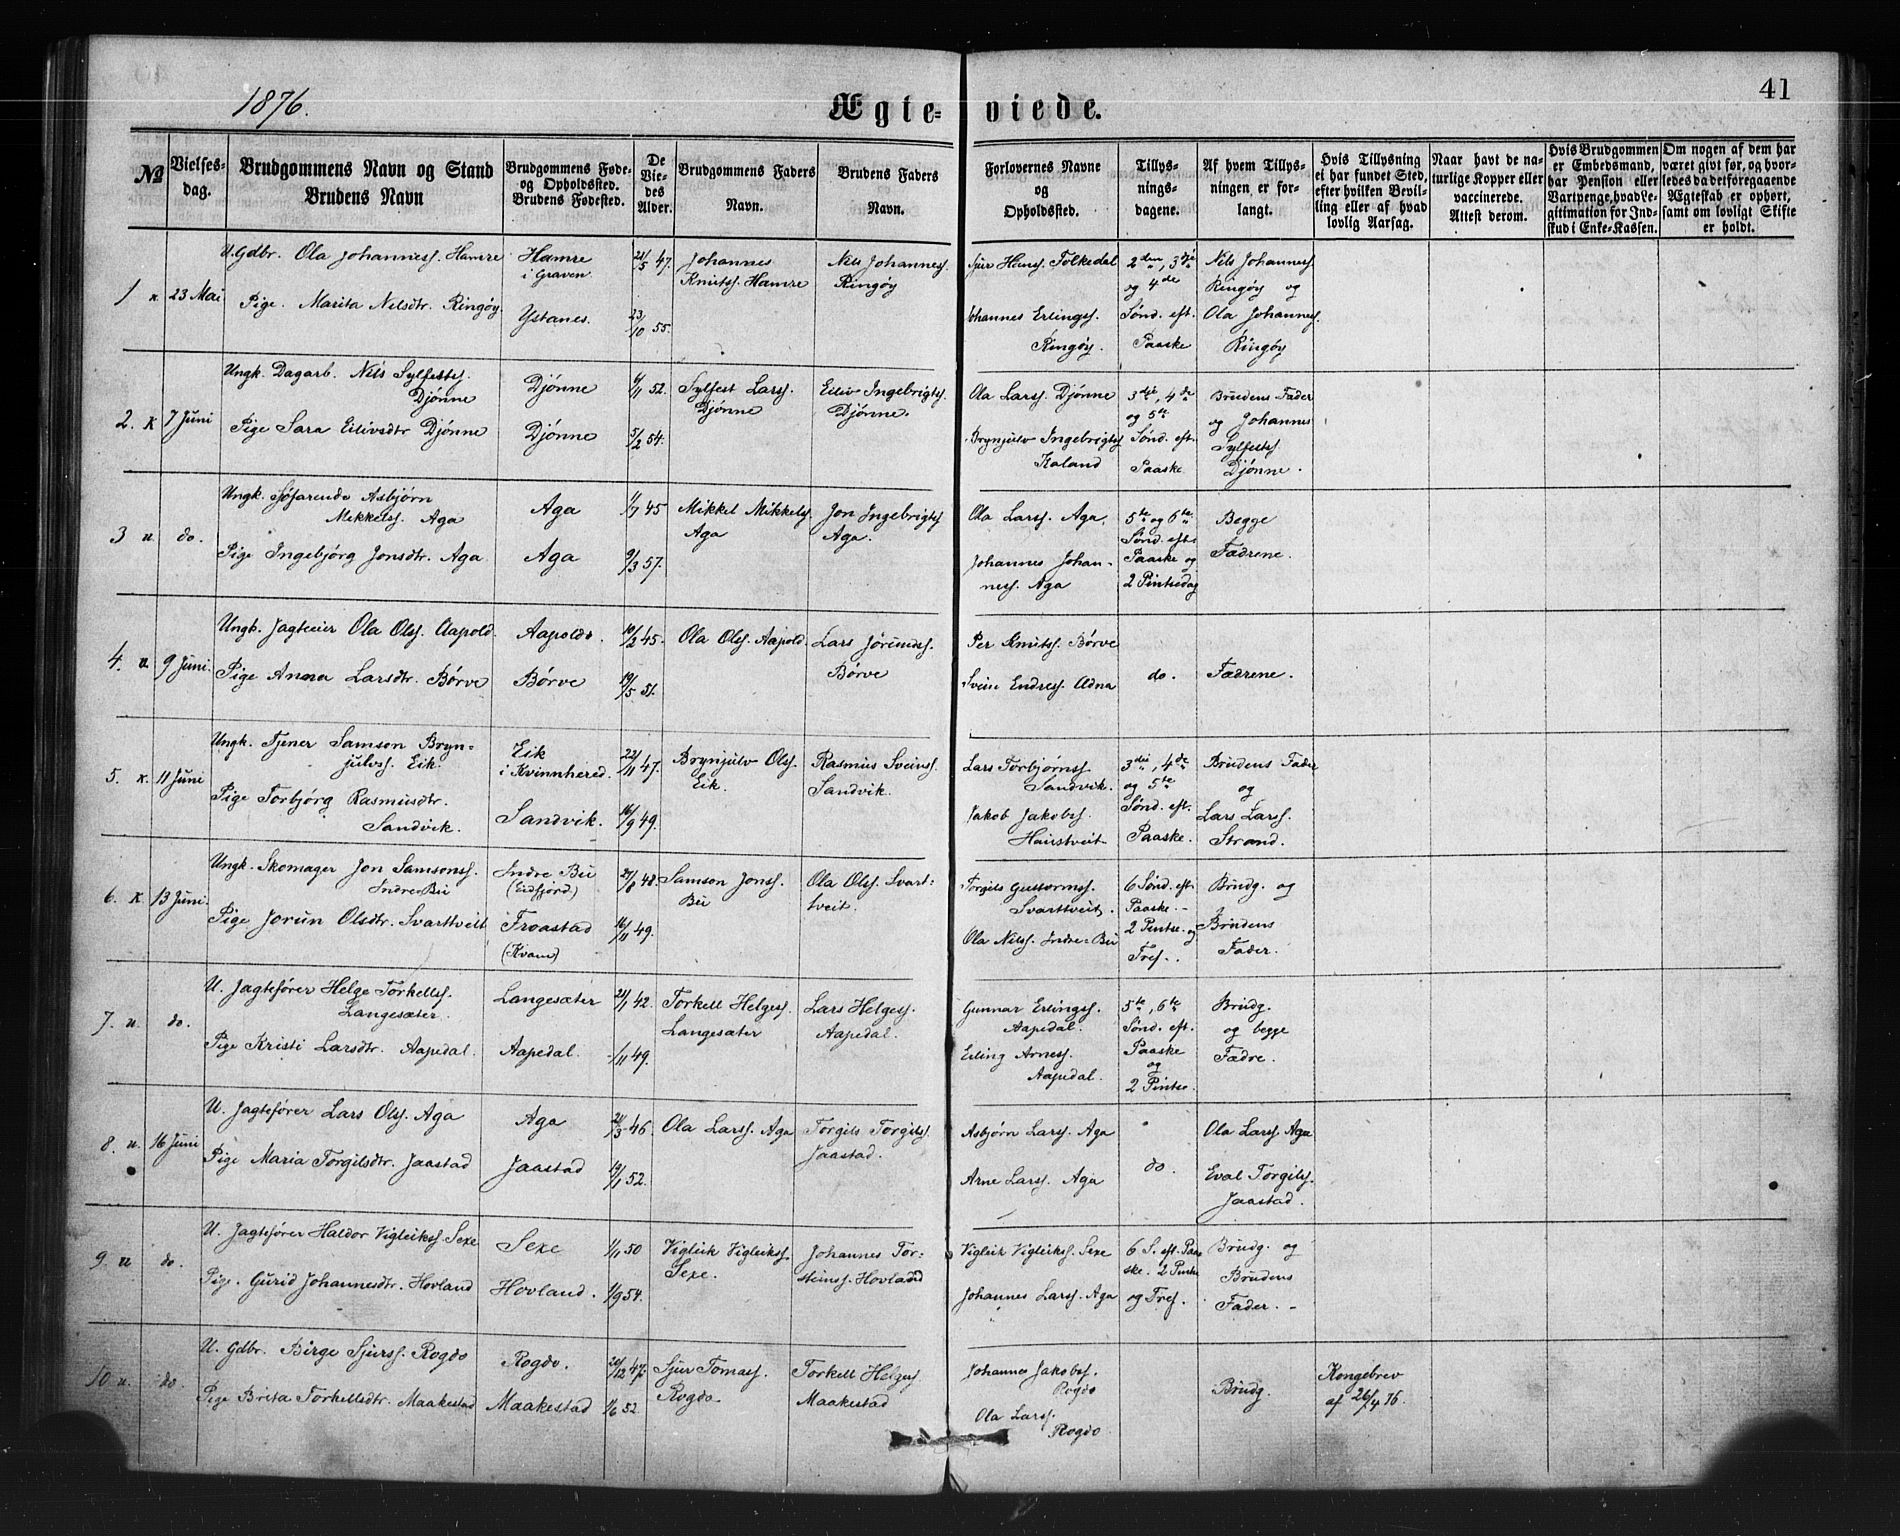 1876.
Ægte=
viede.
41
№
Vielses-
dag.
Brudgommens Navn og Stand
Brudens Navn
Brudgommens Føde-
og Opholdssted.
Brudens Fødested.
De
Vie-
des
Alder.
Brudgommens Faders
Navn.
Brudens Faders
Navn.
Forlovernes Navne
og
Opholdssted.
Tillys-
nings-
dagene.
Af hvem Tillys-
ningen er for-
langt.
Hvis Tillysning
ei har fundet Sted,
efter hvilken Bevil-
ling eller af hvad
lovlig Aarsag.
Naar havt de na-
turlige Kopper eller
vaccinerede.
Attest derom.
Hvis Brudgommen
er Embedsmand,
har Pension eller
Vartpenge, hvad Le-
gitimation for Ind-
skud i Enke-Kassen.
Om nogen af dem har
været givt før, og hvor-
ledes da det foregaaende
Ægtestab er ophørt,
samt om lovligt Skifte
er holdt.
1 k 23 Mai
U. Gdbr. Ola Johanness. Hamre
Pige. Marita Nelsdtr. Ringøy.
Hamre
i Graven
Ystanes.
21/5 47.
23/10 55.
Johannes
Knuts. Hamre
Nils Johanness.
Ringøy
Sjur Hans. Folkedal
Johannes Erlings.
Ringøy.
2den, 3die
og 4de
Sønd. eft.
Paaske
Nils Johanness.
Ringøy og
Ola Johanness.
Ringøy
2. k 7 Juni
Ungk. Dagarb. Nils Sylfests.
Djønne
Pige Sara Eilivsdtr Djønne
Djønne
Djønne
/11 52.
5/2 54.
Sylfest Larss.
Djønne
Eiliv Ingebrigts.
Djønne.
Ola Larss. Djønne
Brynjulv Ingebrigts.
Kaland
3die, 4de
og 5te
Sønd. eft.
Paaske.
Brudens Fader
og Johannes
Sylfests.
Djønne.
3 u. do.
Ungk. Søfarende Asbjørn
Mikkels. Aga
Pige Ingebjørg Jonsdtr. Aga
Aga
Aga
1/7 45
9/3 57.
Mikkel Mikkels.
Aga
Jon Ingebrigts.
Aga.
Ola Larss. Aga.
Johannes Johan-
ness. Aga
5te og 6te
Sønd. eft.
Paaske og
2 Pintsedag
Begge
Fædrene.
4. u. 9 Juni.
Ungk. Jagteeier Ola Ols. Aapold.
Pige Anna Larsdtr. Børve
Aapoldo.
Børve
10/2 45.
19/5 51.
Ola Ols. Aapold.
Lars Jørunds.
Børve
Per Knuts. Børve
Svein Endres. Adna
do.
Fædrene.
5. k. 11 Juni
Ungk. Tjener Samson Bryn=
julvs. Eik.
Pige Torbjørg Rasmusdtr.
Sandvik.
Eik
i Kvinnhered.
Sandvik.
22/11 47.
16/9 49.
Brynjulv Ols.
Eik.
Rasmus Sveins.
Sandvik.
Lars Torbjørns.
Sandvik.
Jakob Jakobs.
3die, 4de
og 5te
Sønd. eft.
Paaske.
Brudens Fader
og
Lars Larss.
Strand.
6. k 13 Juni.
Ungk. Skomager Jon Samsons.
Indre Bu
Pige Jorun Olsdtr. Svarttveit
Indre Bu
(Eidfjord.)
Troastad
(Kvam)
27/8 48.
16/11 49.
Samson Jons.
Bu
Ola Ols. Svart=
tveit.
Torgils Guttorms.
Svarttveit.
Ola Nils. Indre=Bu
6 Sønd. eft.
Paaske. -
2 Pintse. og
Tref. .
Brudg. og
Brudens
Fader.
7. u. do.
U. Jagtefører Helge Torkells.
Langesæter.
Pige Kristi Larsdtr. Aapedal.
Langesæter
Aapedal.
21/1 42.
/11 49.
Torkell Helges.
Langesæter
Lars Helges.
Aapedal.
Gunnar Erlings.
Aapedal.
Erling Arnes.
Aapedal.
5te, 6te
Sønd. eft.
Paaske
og
2 Pintse.
Brudg.
og begge
Fædre.
8. u. 16 Juni
U. Jagtefører Lars Ols. Aga
Pige Maria Torgilsdtr. Jaastad
Aga
Jaastad
21/3 46
19/1 52.
Ola Larss. Aga
Torgils Torgils.
Jaastad.
Asbjørn Larss. Aga
Arne Larss. Aga
do.
Ola Larss Aga
Torgils.
Jaastad.
9 u do.
U. Jagtefører Haldor Vigleiks Sexe
Pige. Gurid Johannesdtr. Hovland
Sexe
Hovland.
1/11 50
1/9 54.
Vigleik Vigleiks.
Sexe.
Johannes Tor=
steins. Hovland
Vigleik Vigleiks. Sexe
Johannes Larss. Aga
6 S. eft. Paa
ske. 2 Pintse
og Tref.
Brudg. og
Brudens
Fader. -
10 u. do
U. Gdbr. Birge Sjurss. Rogdo
Pige Brita Torkellsdtr. Maakestad
Rogdo.
Maakestad
20/12 47
1/6 52.
Sjur Tomas.
Rogdo.
Torkell Helges.
Maakestad
Johannes Jakobs.
Rogdo
Ola Larss.
Rogdo
Brudg.
Kongebrev
af 26/4 76.